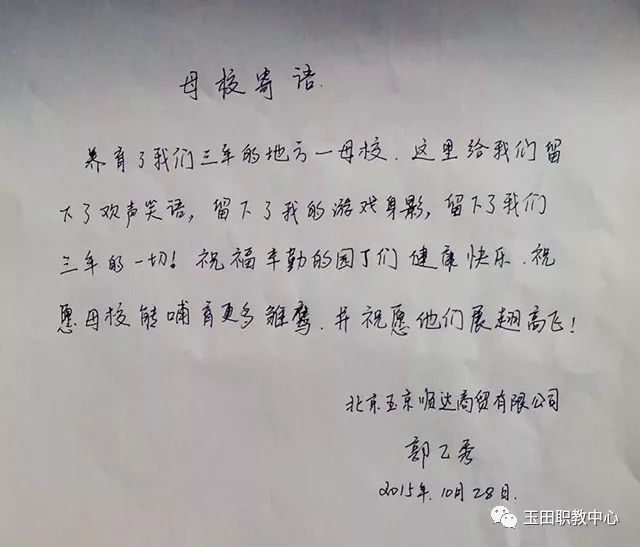 母校寄语.
养育了我们三年的地方—母校.这里给我们留
下了欢声笑语,留下了我的游戏身影,留下了我们
三年的一切!祝福辛勤的园丁们健康快乐.祝
愿母校能哺育更多雏鹰.并祝愿他们展翅高飞!
北京玉京顺达商贸有限公司
郭乙秀
2015年.10月28日.
玉田职教中心